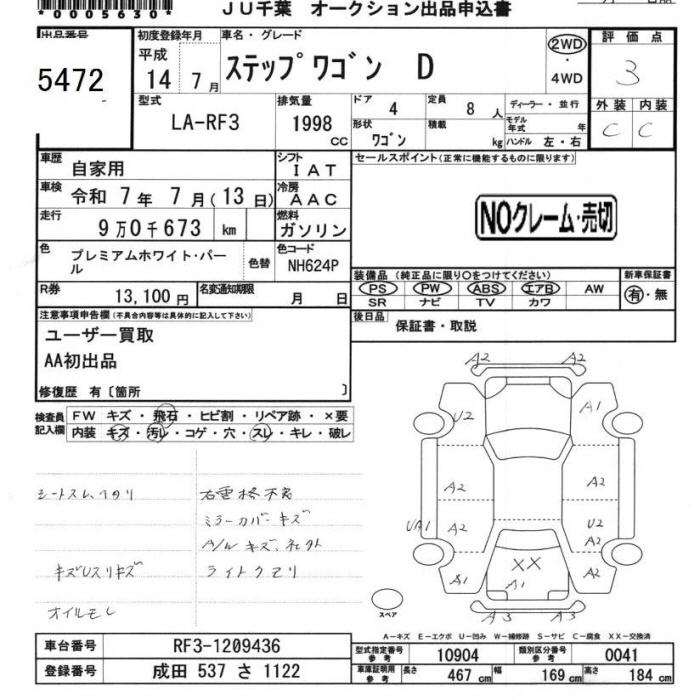 *0005630*
JU千葉 オークション出品申込書
出品番号
5472
初度登録年月
平成
14年 7月
車名・グレード
ステップワゴン D
2WD
・
4WD
評価点
3
外装 内装
C C
型式
LA-RF3
排気量
1998 cc
ドア 4
定員 8人
ディーラー・並行
形状 ワゴン
積載 kg
モデル年式 年
ハンドル 左・右
車歴 自家用
シフト IAT
セールスポイント(正常に機能するものに限ります)
車検 令和 7年 7月(13日)
冷房 AAC
NOクレーム・売切
走行 9万0千673 km
燃料 ガソリン
色 プレミアムホワイト・パール
色替
色コード NH624P
装備品 (純正品に限り○をつけてください)
PS PW ABS エアB AW
SR ナビ TV カワ
新車保証書
有・無
R券 13,100円
名変通知期限 月 日
後日品 保証書・取説
注意事項申告欄(不具合内容等は具体的に記入して下さい)
ユーザー買取
AA初出品
修復歴 有〔箇所 〕
検査員記入欄
FW キズ・飛石・ヒビ割・リペア跡・×要
内装 キズ・汚レ・コゲ・穴・スレ・キレ・破レ
シートスレ、
キズUスリキズ
オイルモレ
右電格不良
ミラーカバーキズ
A/Wキズ、
ライトクモリ
A2 A2
U2 A1
A2 A2
UA1 A2 U2
A1 XX A1 A2
A3 A3
スペア
A-キズ E-エクボ U-凹み W-補修跡 S-サビ C-腐食 XX-交換済
車台番号 RF3-1209436
登録番号 成田 537 さ 1122
型式指定番号 参考 10904
類別区分番号 参考 0041
車庫証明用 参考 長さ 467 cm 幅 169 cm 高さ 184 cm